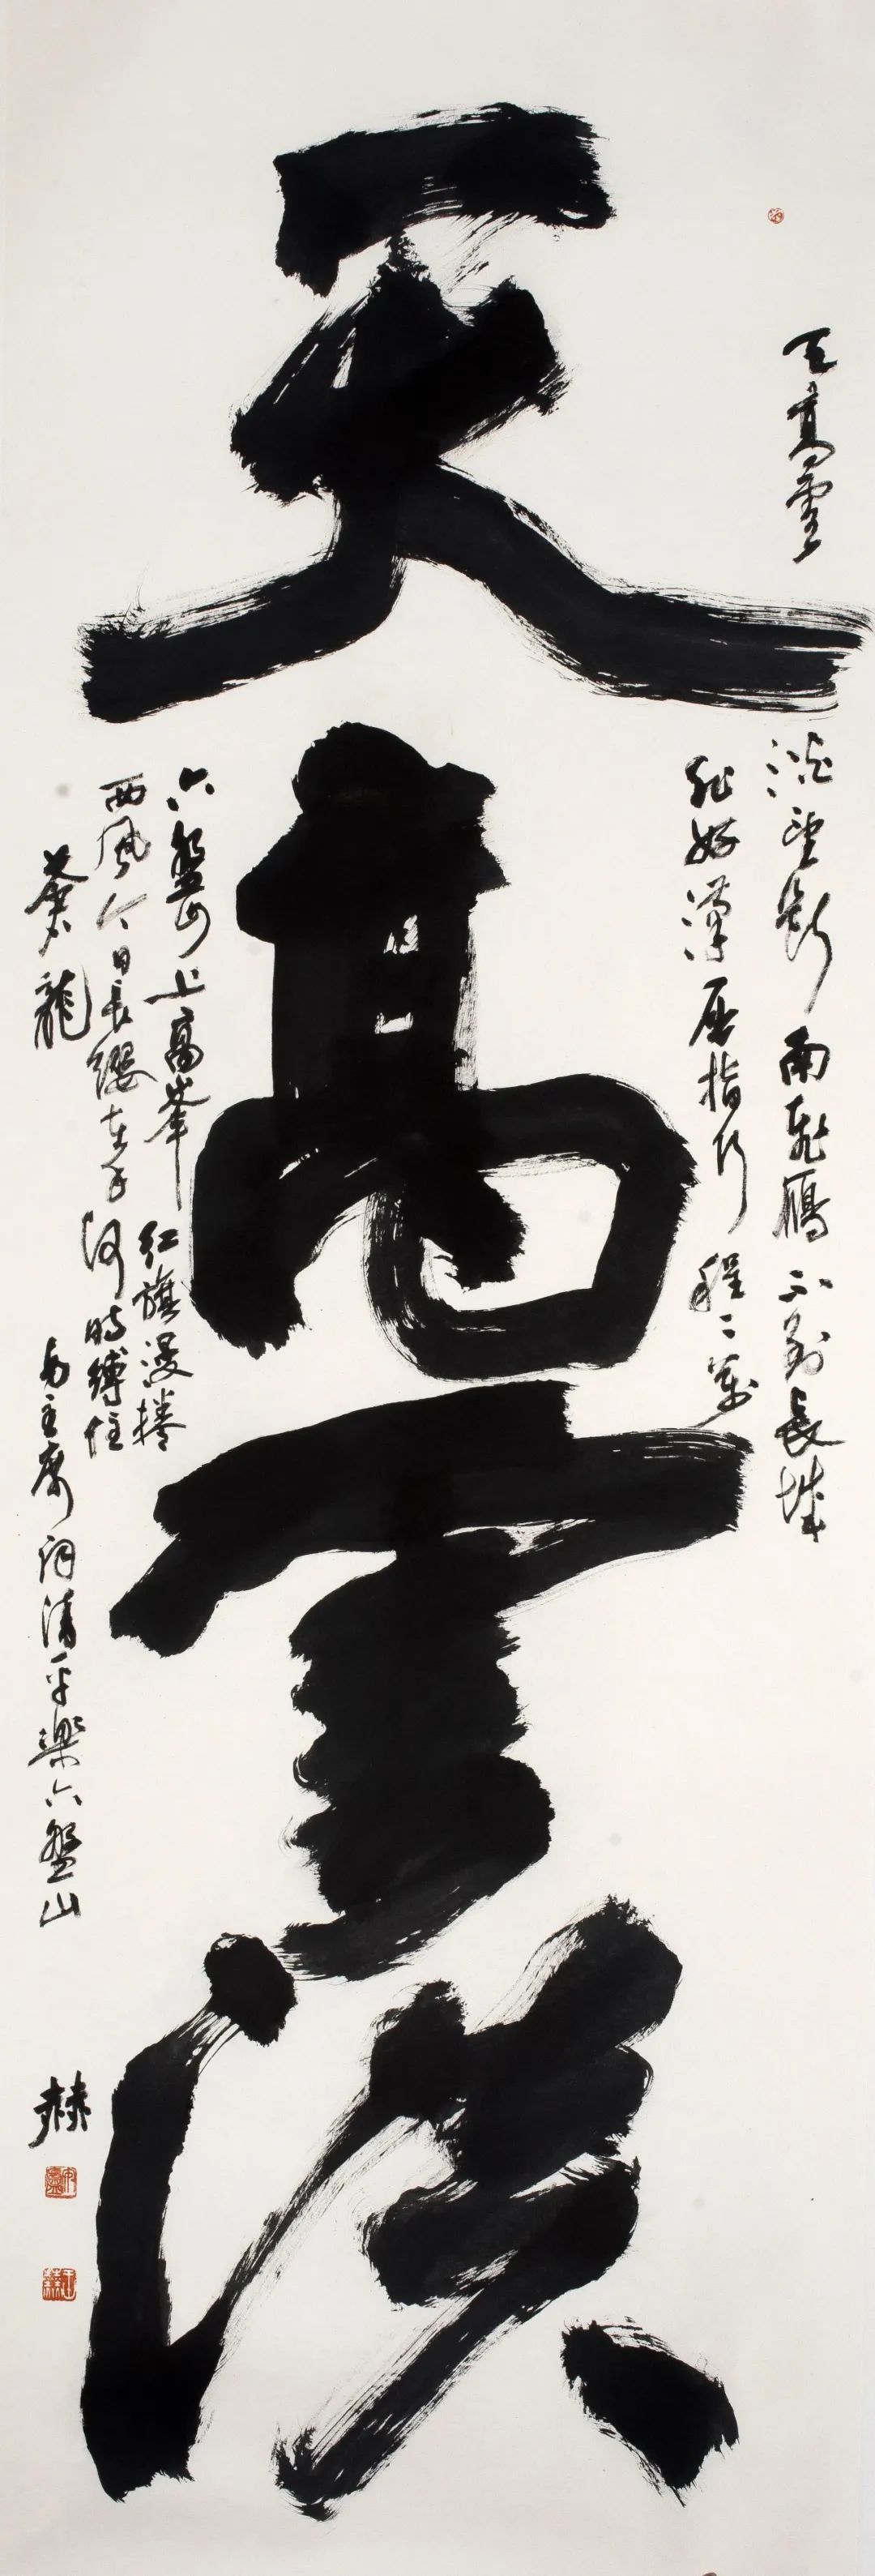 天高雲淡
天高雲
淡望斷南飛鴈不到長城
非好漢屈指行程二萬
六盤山上高峯紅旗漫捲
西風今日長纓在手何時縛住
蒼龍
毛主席詞清平樂六盤山
赫